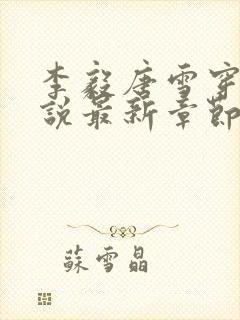 李毅唐雪穿
說最新章節
蘇雪晶